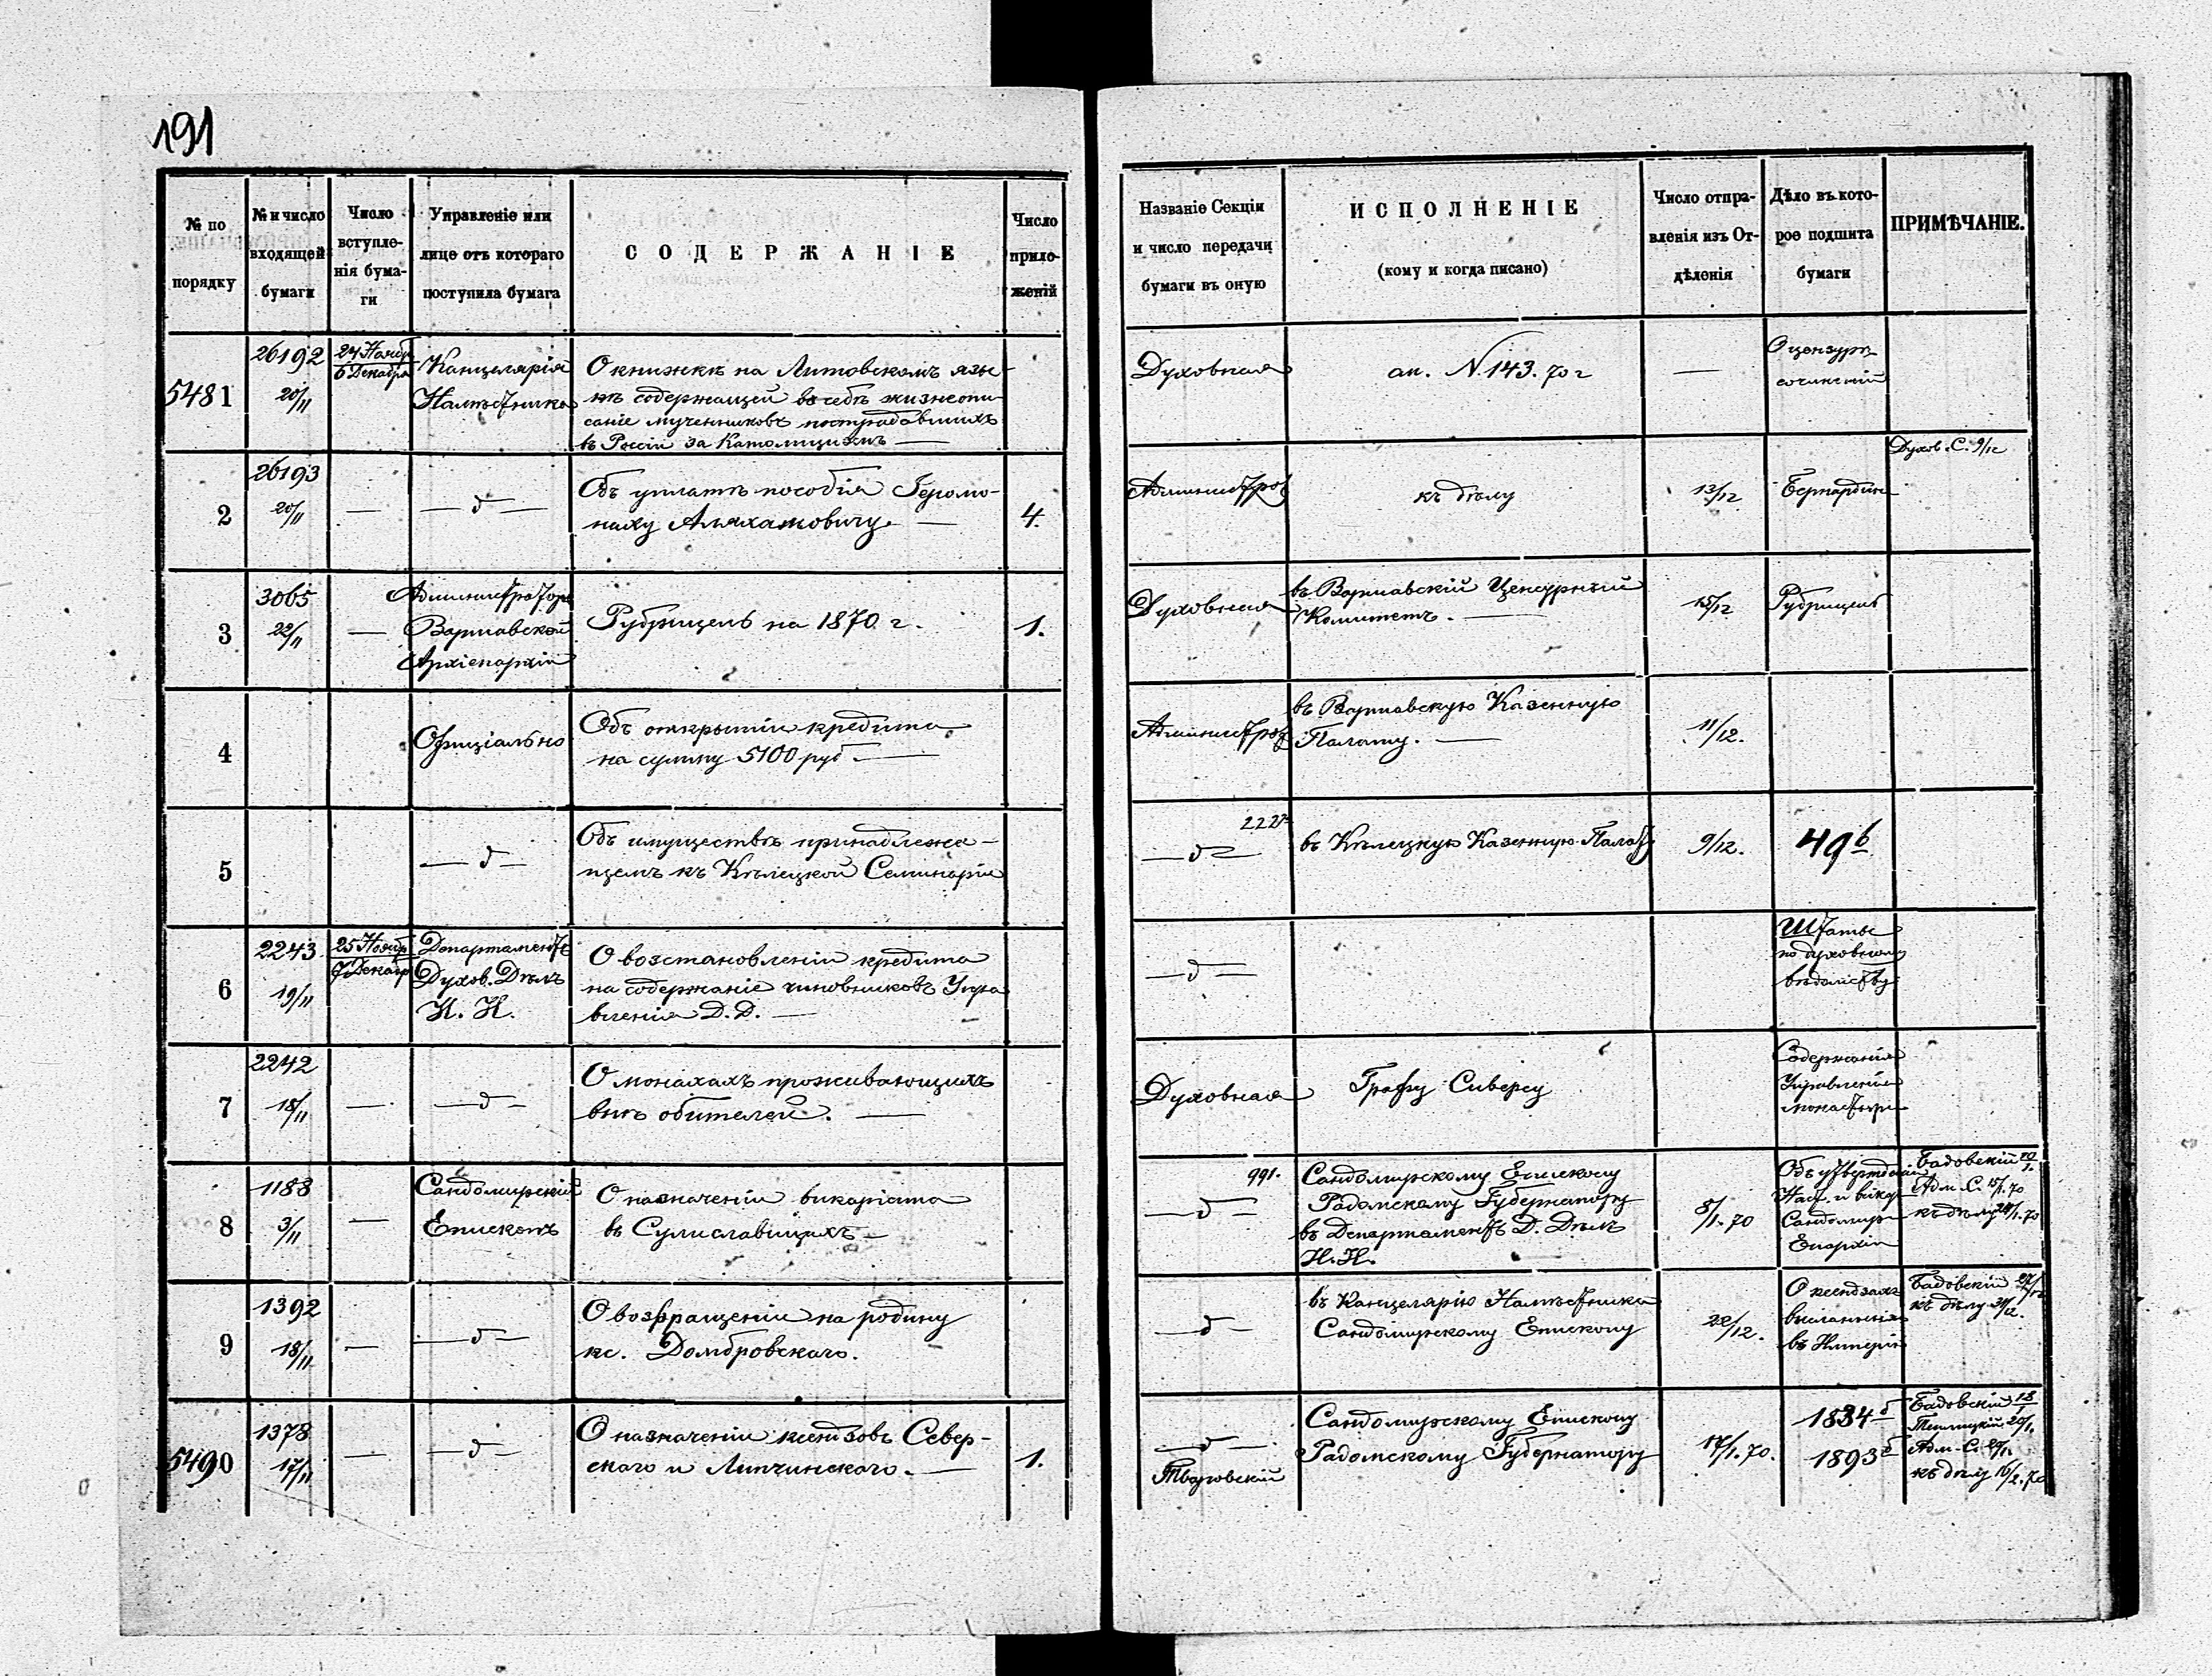 191
№ по порядку
№ и число входящей бумаги
Число вступленія бумаги
Управленіе или лице отъ котораго поступила бумага
СОДЕРЖАНІЕ
Число приложеній
Названіе Секціи и число передачи бумаги въ оную
ИСПОЛНЕНІЕ
(кому и когда писано)
Число отправленія изъ Отдѣленія
Дѣло въ которое подшита бумаги
ПРИМѢЧАНІЕ.
5481
26192
20/11
24 Ноябр
6 Декабря
Канцелярія
Намѣстника
О книжкѣ на Литовскомъ язы-
кѣ содержащей въ себѣ жизнеопи-
саніе мучениковъ пострадавшихъ
въ Россіи за Католицизмъ —
Духовная
ан. N 143. 70 г
—
О цензурѣ
сочиненій
2
26193
20/11
—
— д —
Объ уплатѣ пособія Іеромо-
наху Аляхамовичу. —
4.
Администрат
къ дѣлу
13/12
Бернардин
Духов. С. 9/12
3
3065
22/11
—
Администраторъ
Варшавской
Архіепархіи
Рубрицель на 1870 г.
1.
Духовная
въ Варшавскій Ценсурный
Комитетъ. —
15/12
Рубрицель
4
Официально
Объ открытіи кредита
на сумму 5100 руб. —
Администрат
въ Варшавскую Казенную
Палату. —
11/12.
5
— д —
Объ имуществѣ принадлежа-
щемъ къ Кѣлецкой Семинаріи
— д —
въ Кѣлецкую Казенную Палат
9/12.
49 б
6
2243
19/11
25 Нояб
7 Декабр
Департаментъ
Духов. Дѣлъ
И. И.
О возстановленіи кредита
на содержаніе чиновниковъ Упра
вленія Д. Д. —
— д —
Штаты
по духовному
вѣдомству
7
2242
18/11
—
— д —
О монахахъ проживающихъ
внѣ обителей. —
Духовная
Графу Сиверсу
Содержаніе
Управленіе
монастыр
8
1188
3/11
—
Сандомирскій
Епископъ
О назначеніи викаріата
въ Сулиславицахъ —
991.
— д —
Сандомирскому Епископу
Радомскому Губернатору
въ Департаментъ Д. Дѣлъ
И. И.
8/1. 70
Объ утвержденіи
Наст. и викар
Сандомир
Епархіи
Бадовскій
Адм. С. 15/1. 70
къ дѣлу
9
1392
18/11
—
— д —
О возвращеніи на родину
кс. Домбровскаго.
— д —
въ Канцелярію Намѣстника
Сандомирскому Епископу
22/12.
О ксендзахъ
высланныхъ
въ Имперію
Бадовскій 27/12
къ дѣлу 31/12.
5490
1378
17/11
—
— д —
О назначеніи ксендзовъ Север-
скаго и Липчинскаго. —
1.
— д —
Сандомирскому Епископу
Радомскому Губернатору
17/1. 70.
1834 б
1893 б
Бадовскій
Адм. С.
къ дѣлу 16/2. 70